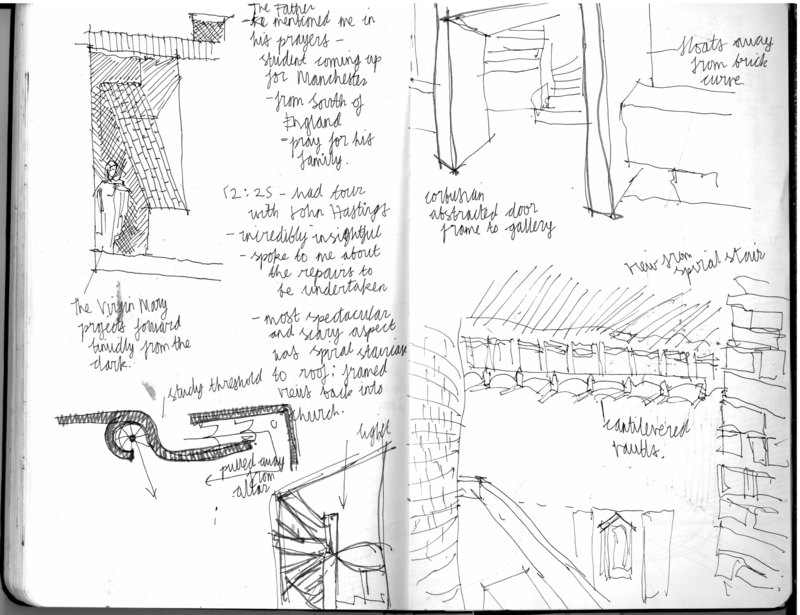 The Father
- He mentioned me in
his prayers -
student coming up
for Manchester
- from South of
England
- pray for his
family.
12:25 - had tour
with John Hastings
- incredibly insightful
- spoke to me about
the repairs to
be undertaken
- most spectacular
and scary aspect
was spiral staircase
to roof: framed
veiws back into
church.
The Virgin Mary
projects forward
timidly from the
dark.
study threshold
pulled away
from
altar
light
floats away
from brick
curve.
corbusian
abstracted door
frame to gallery
view from
spiral stair
cantilevered
vaults.